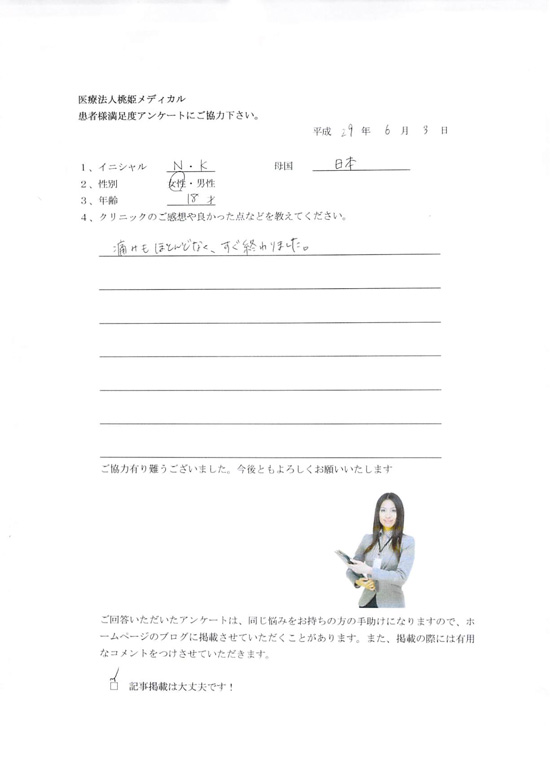 医療法人桃姫メディカル
患者様満足度アンケートにご協力下さい。
平成 29 年 6 月 3 日
1、イニシャル N・K 母国 日本
2、性別 女性・男性
3、年齢 18才
4、クリニックのご感想や良かった点などを教えてください。
痛みもほとんどなく、すぐ終わりました。
ご協力有り難うございました。今後ともよろしくお願いいたします
ご回答いただいたアンケートは、同じ悩みをお持ちの方の手助けになりますので、ホ
ームページのブログに掲載させていただくことがあります。また、掲載の際には有用
なコメントをつけさせていただきます。
☑ 記事掲載は大丈夫です！